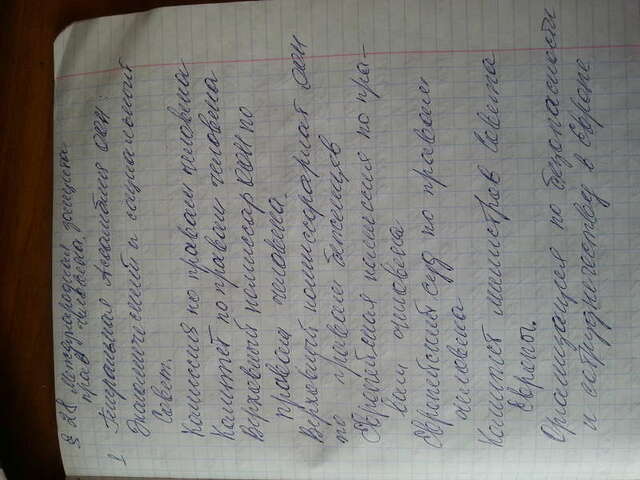 § 28 Международная защита
прав человека.
1 Генеральная Ассамблея ООН:
Экономический и социальный
Совет.
Комиссия по правам человека
Комитет по правам человека
Верховный комиссар ООН по
правам человека.
Верховный комиссариат ООН
по правам беженцев
Европейская комиссия по пра-
вам человека
Европейский суд по правам
человека
Комитет министров Совета
Европы.
Организация по безопасности
и сотрудничеству в Европе